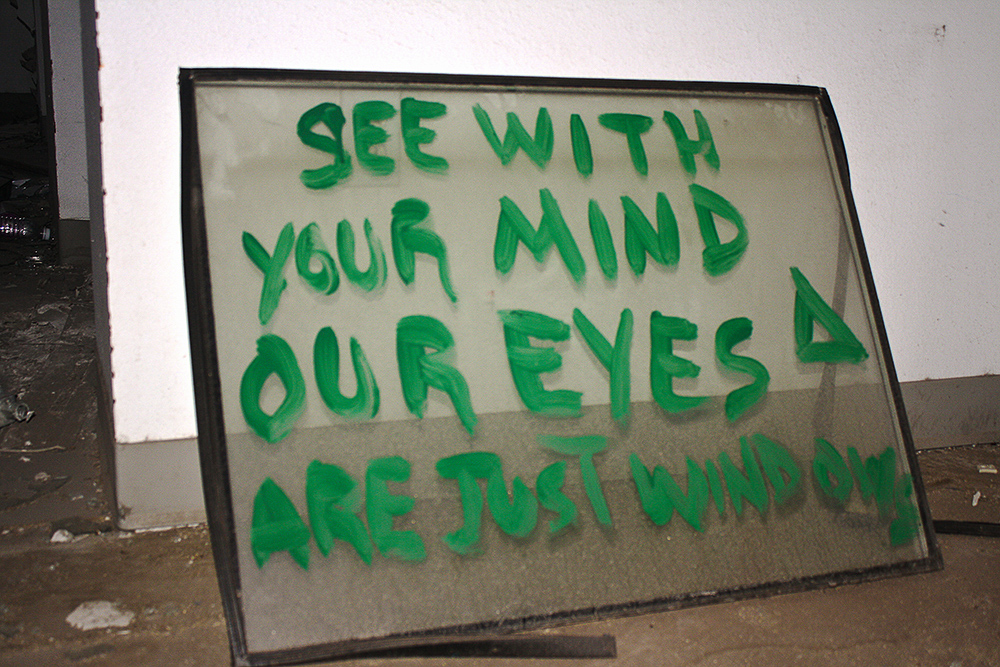 SEE WITH
YOUR MIND
OUR EYES
ARE JUST WINDOWS